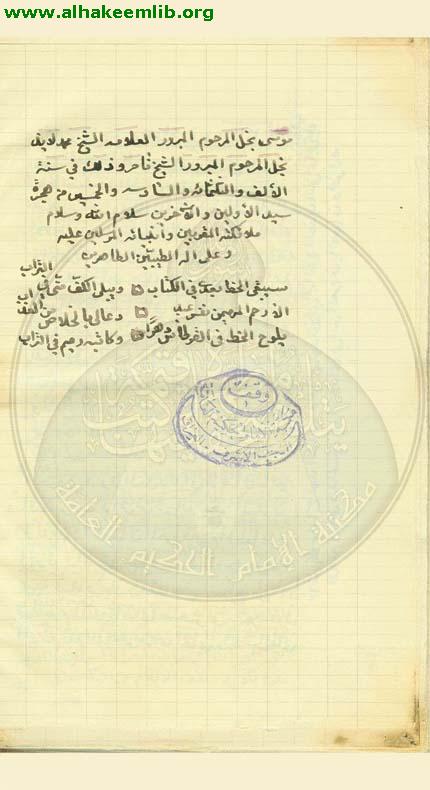 www.alhakeemlib.org
موسى نجل المرحوم المبرور العلامه الشيخ محمد
نجل المرحوم المبرور الشيخ ناصر وذلك في سنة
الألف والثلثمائه والسادسه والخمسين من هجرة
سيد الأولين والآخرين سلام الله وسلام
ملائكته المقربين وأنبيائه المرسلين عليه
وعلى اله الطيبين الطاهرين
سيبقى الخط بعدي في الكتاب ويبلى الكف مني في التراب
الا رحم المهيمن نفس عبد دعالي بالخلاص من
يلوح الخط في القرطاس دهرا وكاتبه رميم في التراب
وقف
مكتبة الإمام الحكيم العامة